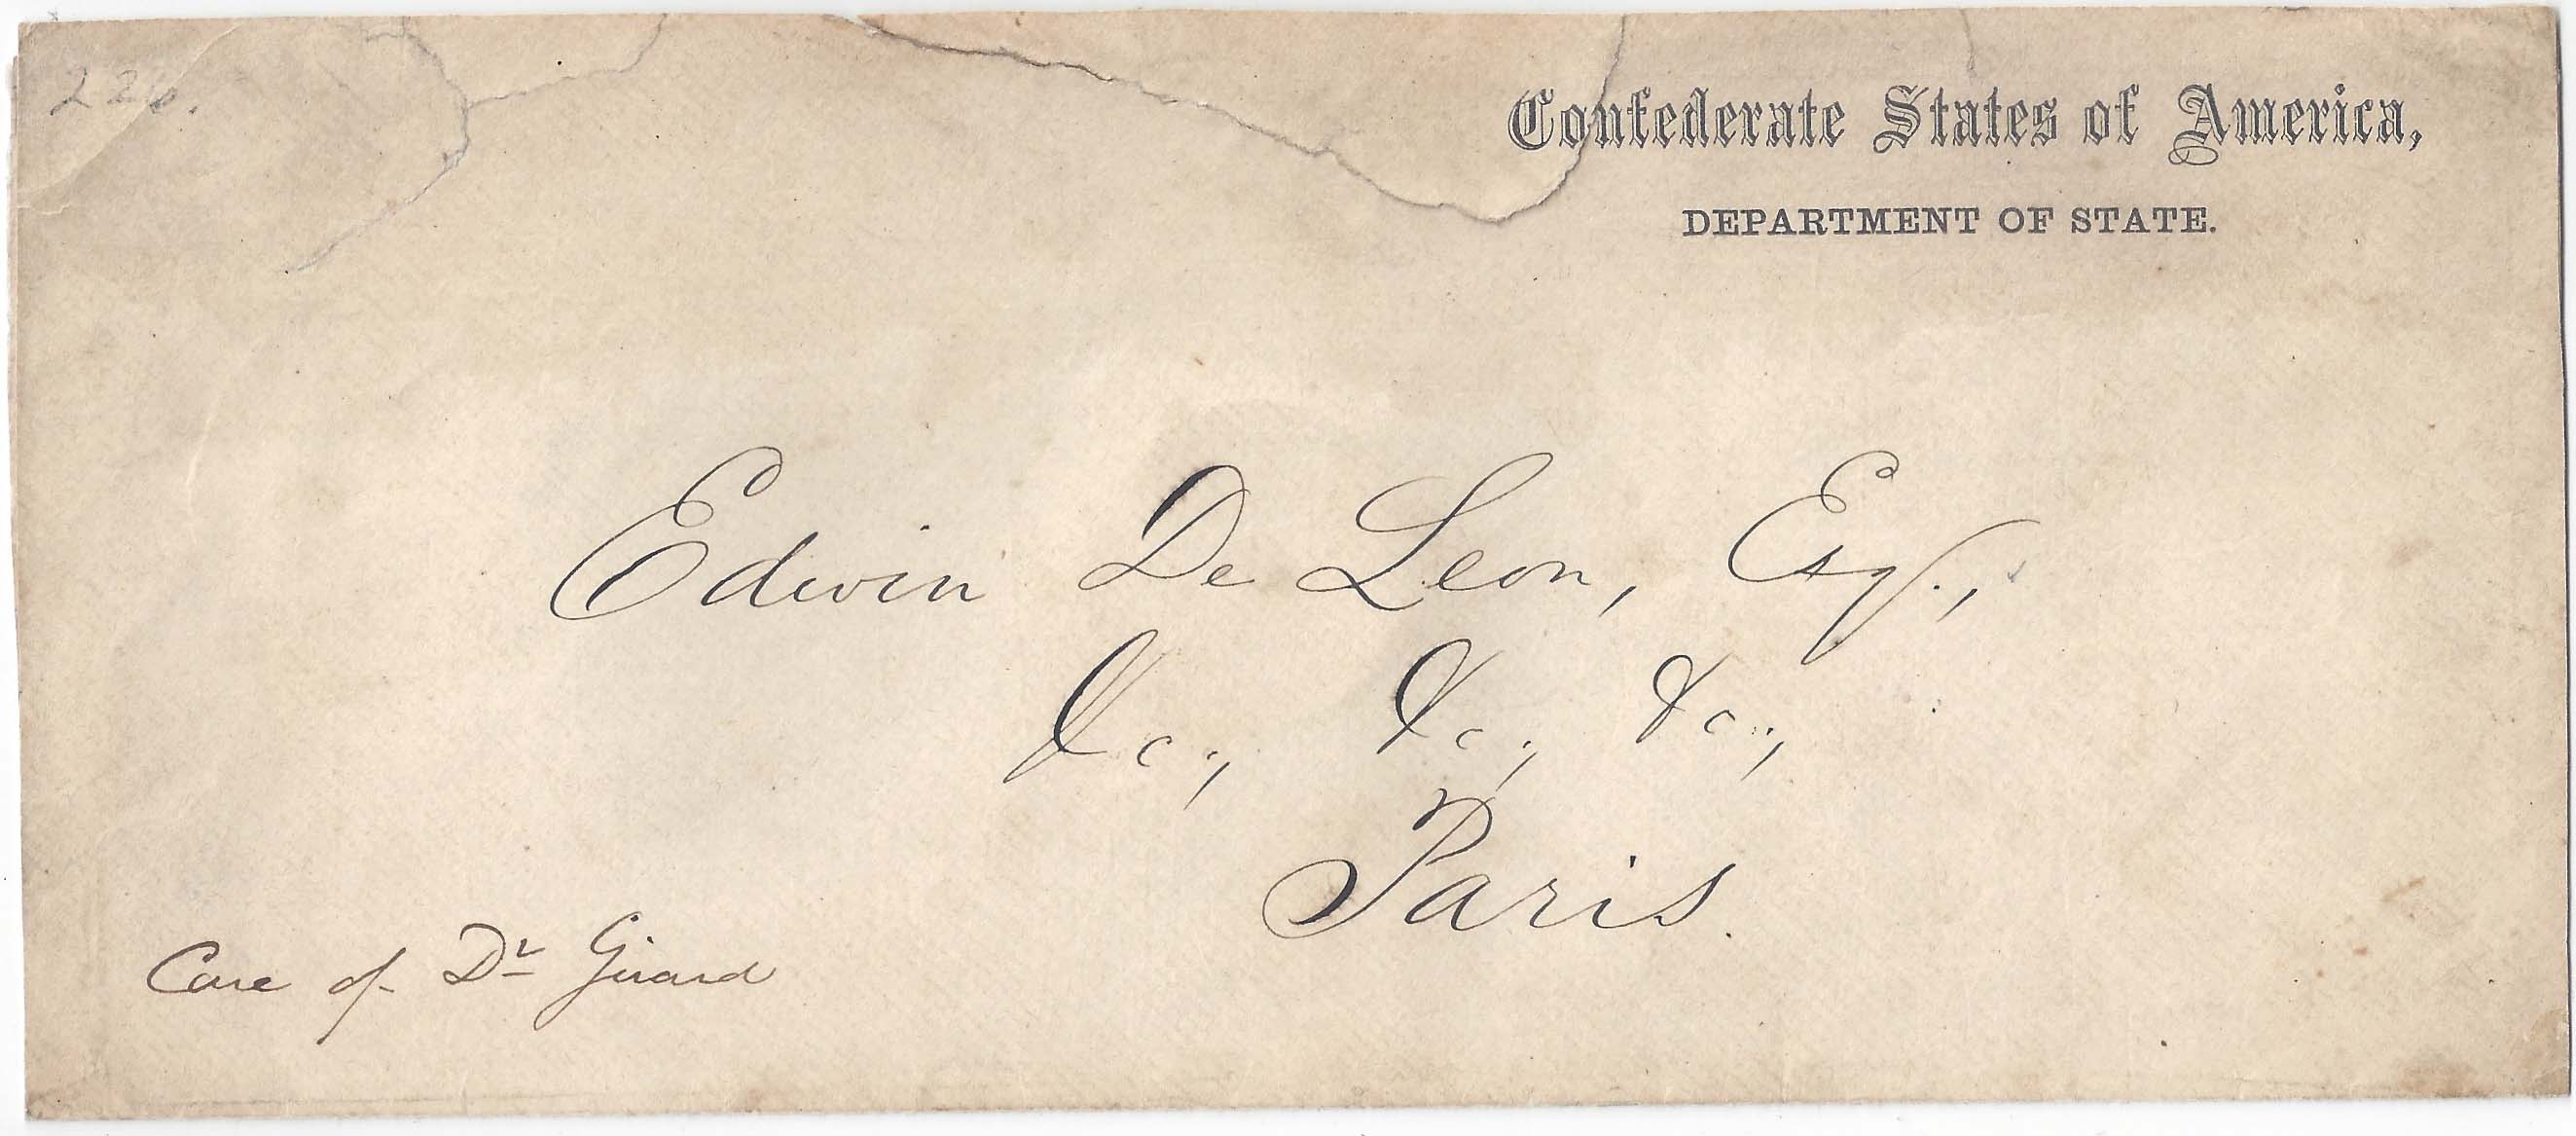 Confederate States of America,
DEPARTMENT OF STATE.
Edwin De Leon, Esq.,
&c., &c., &c.,
Paris.
Care of Dr Girard